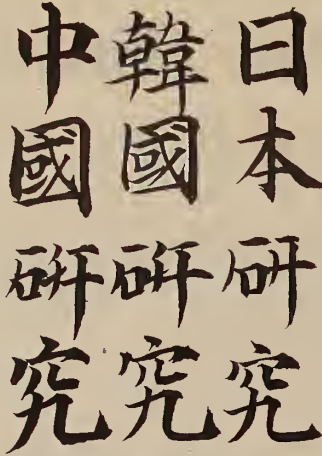 日本研究
韓國研究
中國研究